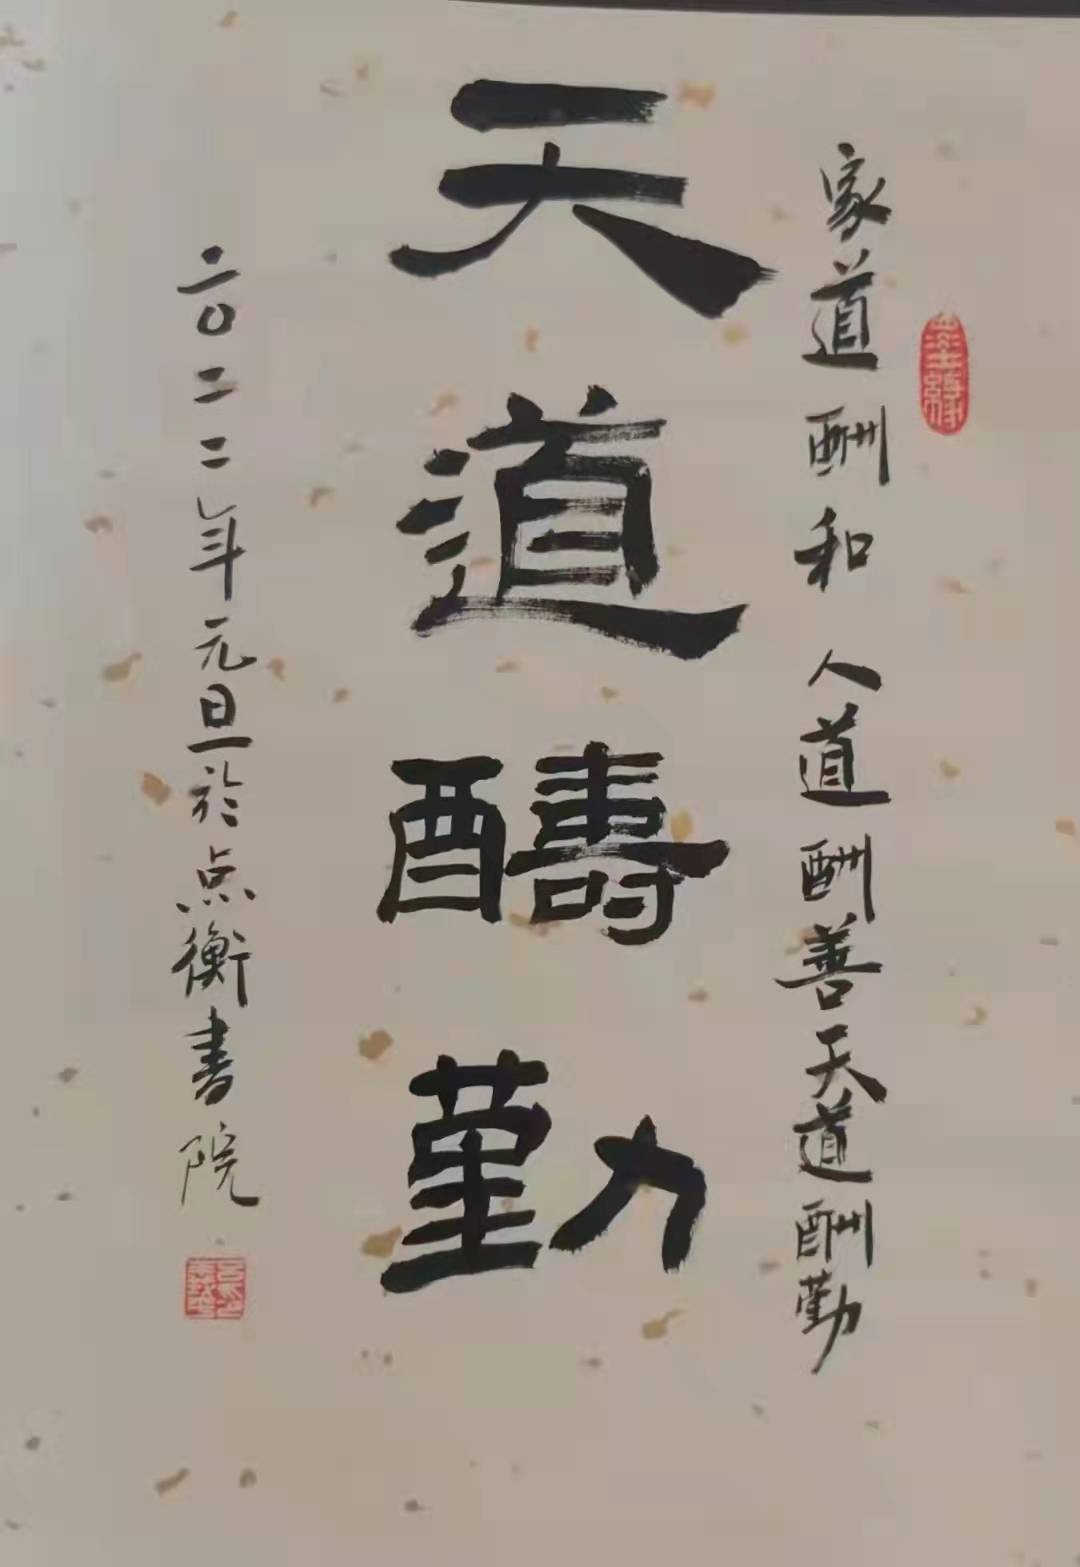 墨緣
家道酬和 人道酬善天道酬勤
天道醻勤
二〇二二年元旦於点衡書院